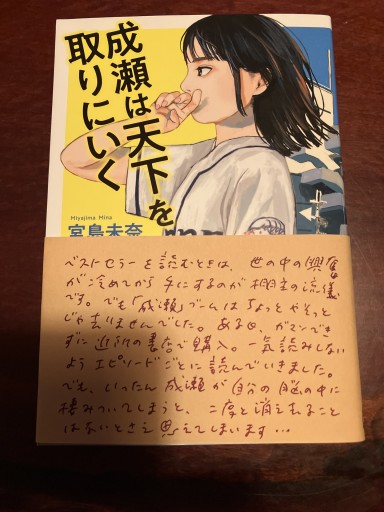 成瀬は天下を
取りにいく
Miyajima Mina
宮島未奈
ベストセラーを読むときは、世の中の興奮
が冷めてから手にするのが相当の流儀
です。でも「成瀬」ブームはちょっとやそっと
じゃ去りませんでした。ある日、ガマンでき
ずに近所の書店で購入。一気読みしない
ようエピソードごとに読んでいきました。
でも、いったん成瀬が自分の脳の中に
棲みついてしまうと、二度と消え去ること
はないとさえ思えてしまいます…